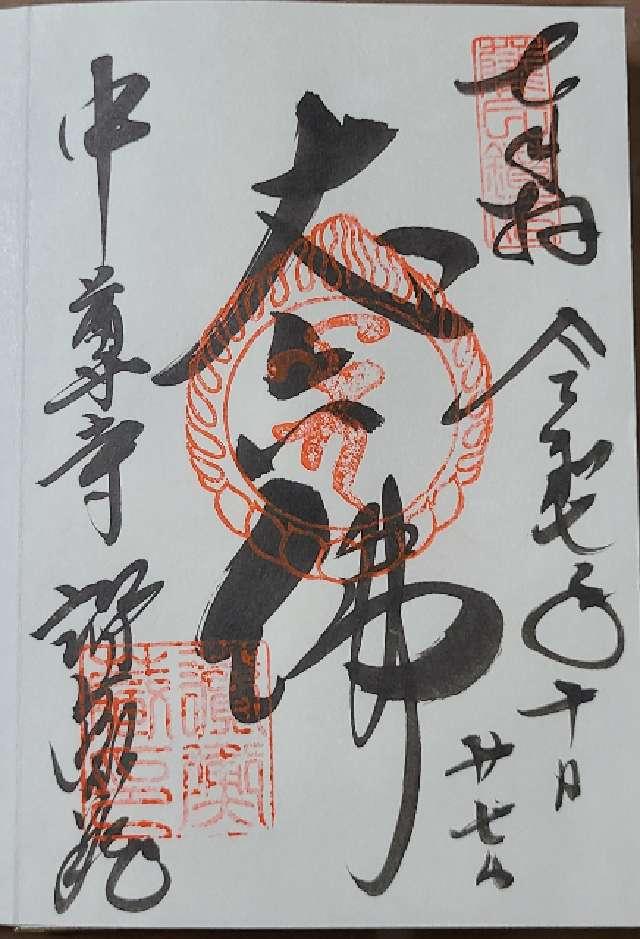 奉拝 令和七年十月廿七日
丈六佛
中尊寺 讃衡蔵
讃衡蔵印